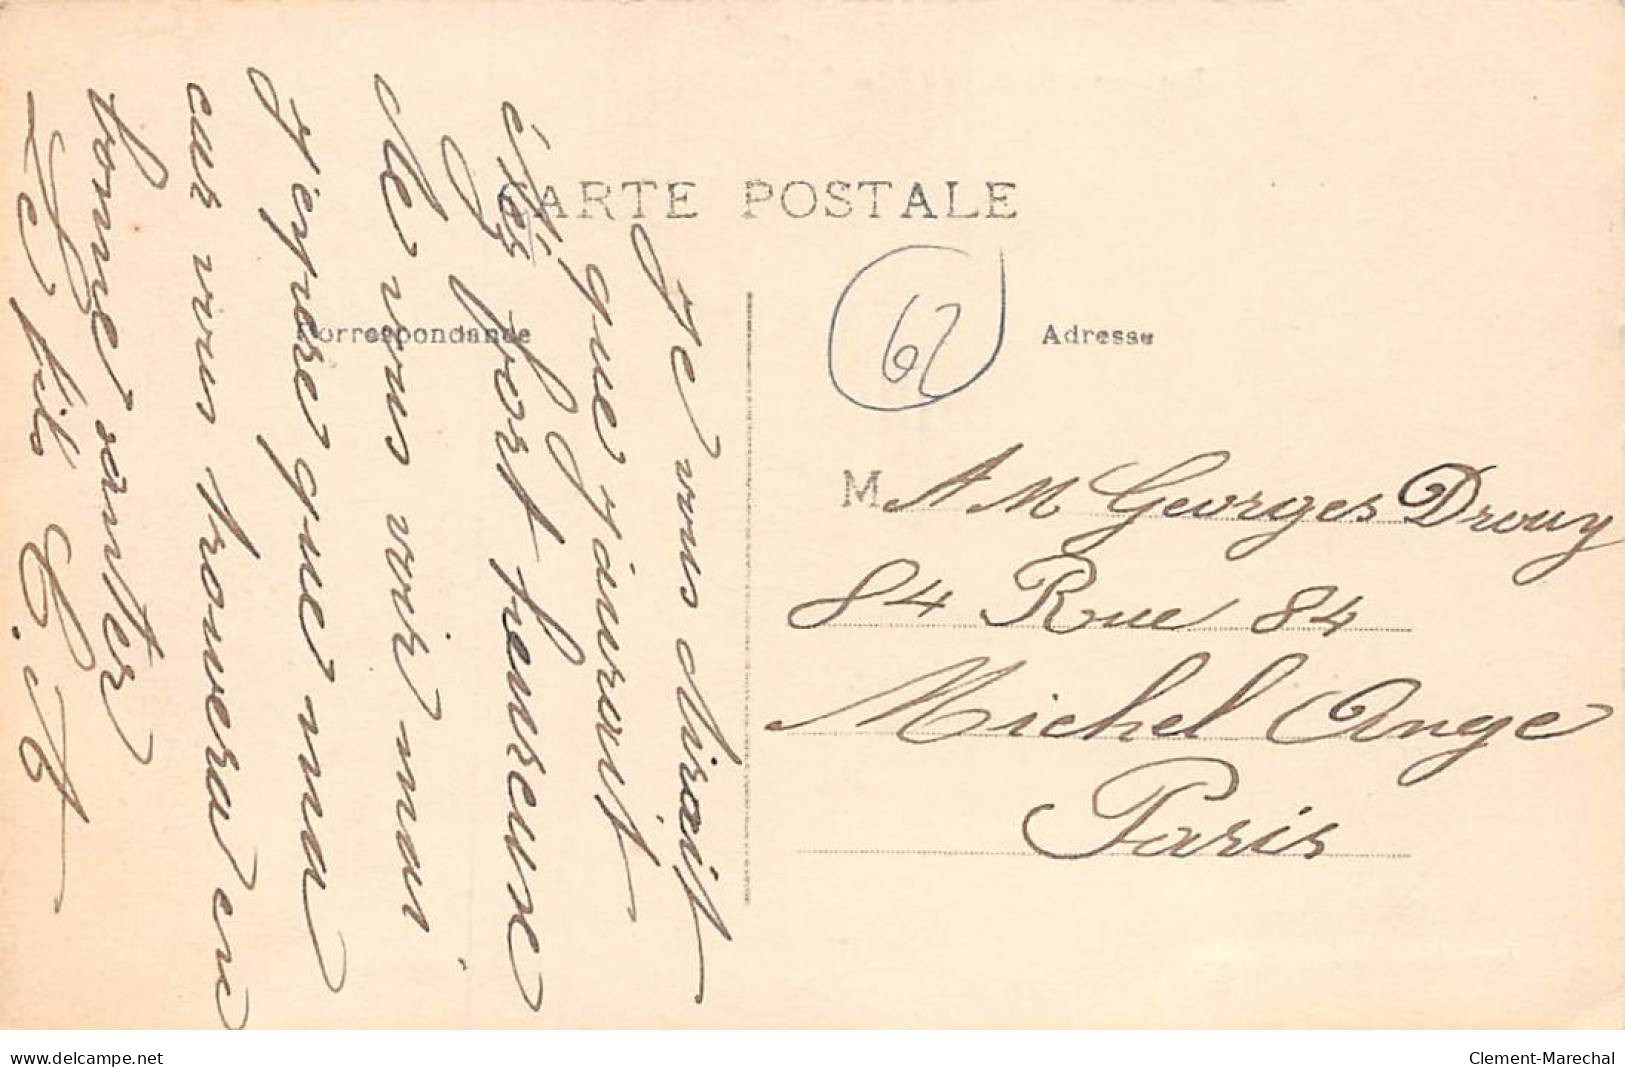 CARTE POSTALE
Correspondance
Adresse
62
Je vous dirait
que j'aurait
été fort heureuse
de vous voir mai
j'espere que ma
car vous trouvera en
bonne santer
Le fils
M A M Georges Drouy
84 Rue 84
Michel Ange
Paris
www.delcampe.net
Clement-Marechal